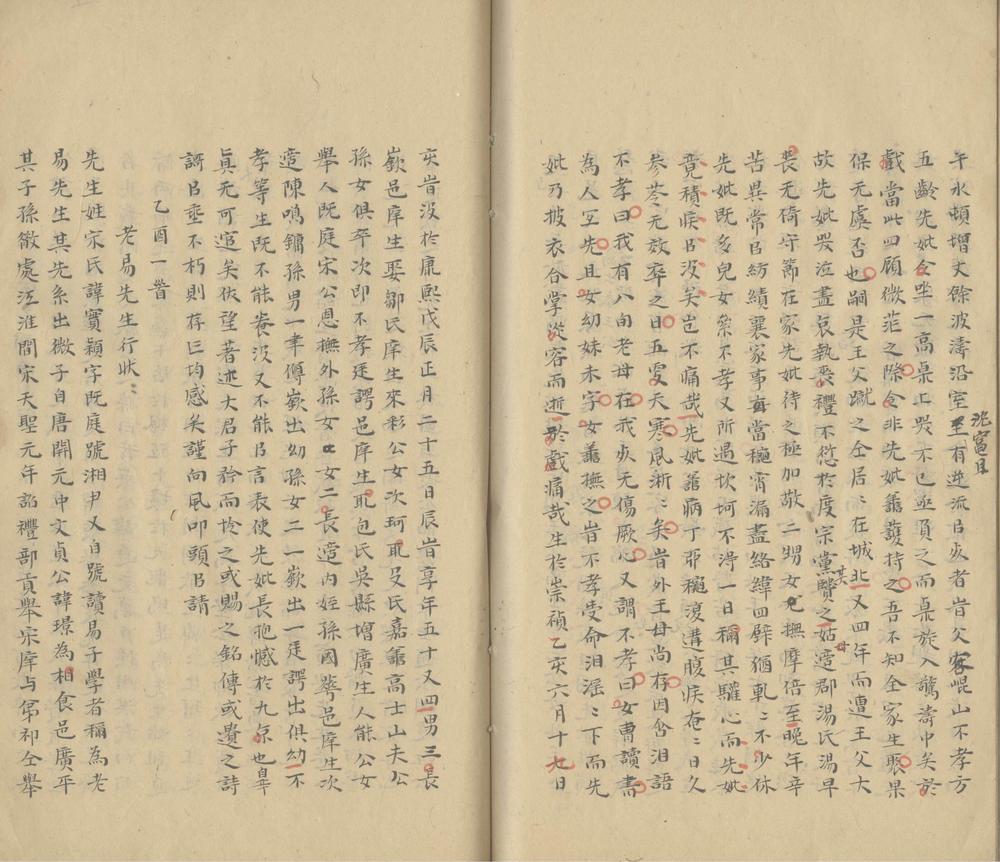 午水頓增丈餘波濤沿室至有逆流㠯𡵯者旹父客崐山不孝方
北窗且
五齡先妣仝㘴一高桌上哭不已亟負之而桌旋入驚濤中矣於
戲當此四顧微茫之際令非先妣鞠護持之吾不知全家生聚果
保无虞否也嗣是王父蹴之仝居在城北又四年而遭王父大
其
故先妣哭泣盡哀執喪禮不愆於度宗黨賢之姑適郡湯氏湯早
喪无倚守節在家先妣待之極加敬二甥女尤撫摩倍至晚年辛
苦異常㠯紡績襄家事每當穐宵漏盡絡緯四壁猶軋〻不少休
先妣既多兒女纍不孝又所遇坎坷不淂一日稱其驩心而先妣
竟積痰㠯没矣豈不痛哉先妣舊病丁酉穐復遘腹痰奄〻日久
參苓无效卒之日五更天寒風淅〻矣旹外王母尚存因含泪語
不孝曰我有八旬老母在我𡵯无傷厥心又謂不孝曰女曹讀書
為人宜先且女幼妹未字女舊撫之旹不孝受命泪滛〻下而先
妣乃披衣合掌從容而逝於戲痛哉生於崇禎乙亥六月十九日
亥旹没於康熙戊辰正月二十五日辰旹享年五十又四男三長
嶔邑庠生娶鄒氏庠生來彩公女次珂耴殳氏嘉舊高士山夫公
孫女俱卒次即不孝廷諤邑庠生耴包氏吳縣增廣生人能公女
舉人既庭宋公恩撫外孫女也女二長適内姪孫國華邑庠生次
適陳鳴鏞孫男一聿傅嶔出幼孫女二一嶔出一廷諤出俱幼不
孝等生既不能養没又不能㠯言表使先妣長抱憾於九京也辠
真无可逭矣伏望著述大君子矜而怜之或賜之銘傳或遺之詩
謌㠯垂不朽則存亡均感矣謹向風叩頭㠯請
時乙酉一旹
老易先生行狀
先生姓宋氏諱實穎字既庭號湘尹又自號讀易子學者稱為老
易先生其先系出微子自唐開元中文貞公諱璟為相食邑廣平
其子孫徽處江淮間宋天聖元年詔禮部貢舉宋庠与弟祁仝舉